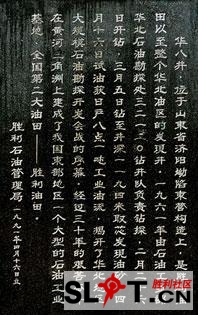 华八井，位于山东省济阳坳陷东营构造上，是胜
田以至整个华北油区的发现井。一九六一年由石油工
华北石油勘探处三二一二〇钻井队负责钻探，二月二十六
日开钻，三月五日钻至井深一一九四米取芯发现油砂，四
月十六日试油获日产八点一吨工业油流，揭开了华北
大规模石油勘探开发会战的序幕。经过三十年的艰苦
在黄河三角洲上建成了我国东部地区一个大型的石油工业
基地，全国第二大油田——胜利油田。
胜利石油管理局
一九九一年四月十六日立
胜利社区
SLOF.CN